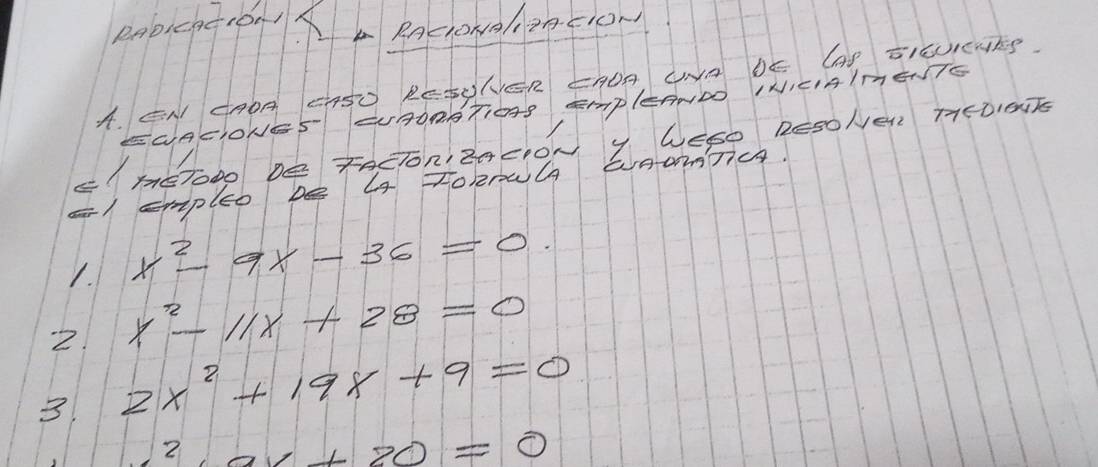 RADICACIÓN
RACIONALIZACION
A. EN CADA CASO RESOLVER CADA UNA DE LAS SIGUIENTES
ECUACIONES CUADRÁTICAS EMPLEANDO INICIALMENTE
El MÉTODO DE FACTORIZACIÓN Y LUEGO RESOLVER MEDIENTE
El EMPLEO DE LA FORMULA CUADRATICA.
1. x² - 9x - 36 = 0.
2. x² - 11x + 28 = 0
3. 2x² + 19x + 9 = 0
+ 20 = 0